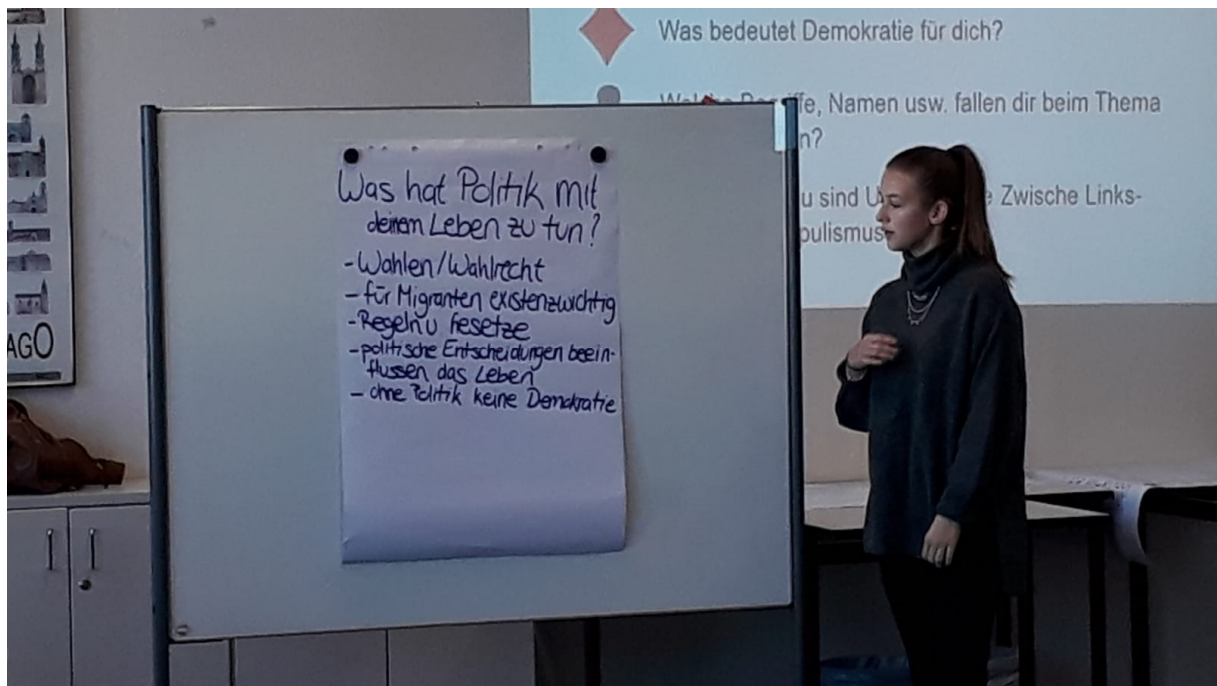 Was bedeutet Demokratie für dich?
ffe, Namen usw. fallen dir beim Thema
n?
u sind U e Zwische Links-
pulismus
Was hat Politik mit
deinem Leben zu tun?
- Wahlen/Wahlrecht
- für Migranten existenzwichtig
- Regeln u Gesetze
- politische Entscheidungen beein-
flussen das Leben
- ohne Politik keine Demokratie
AGO